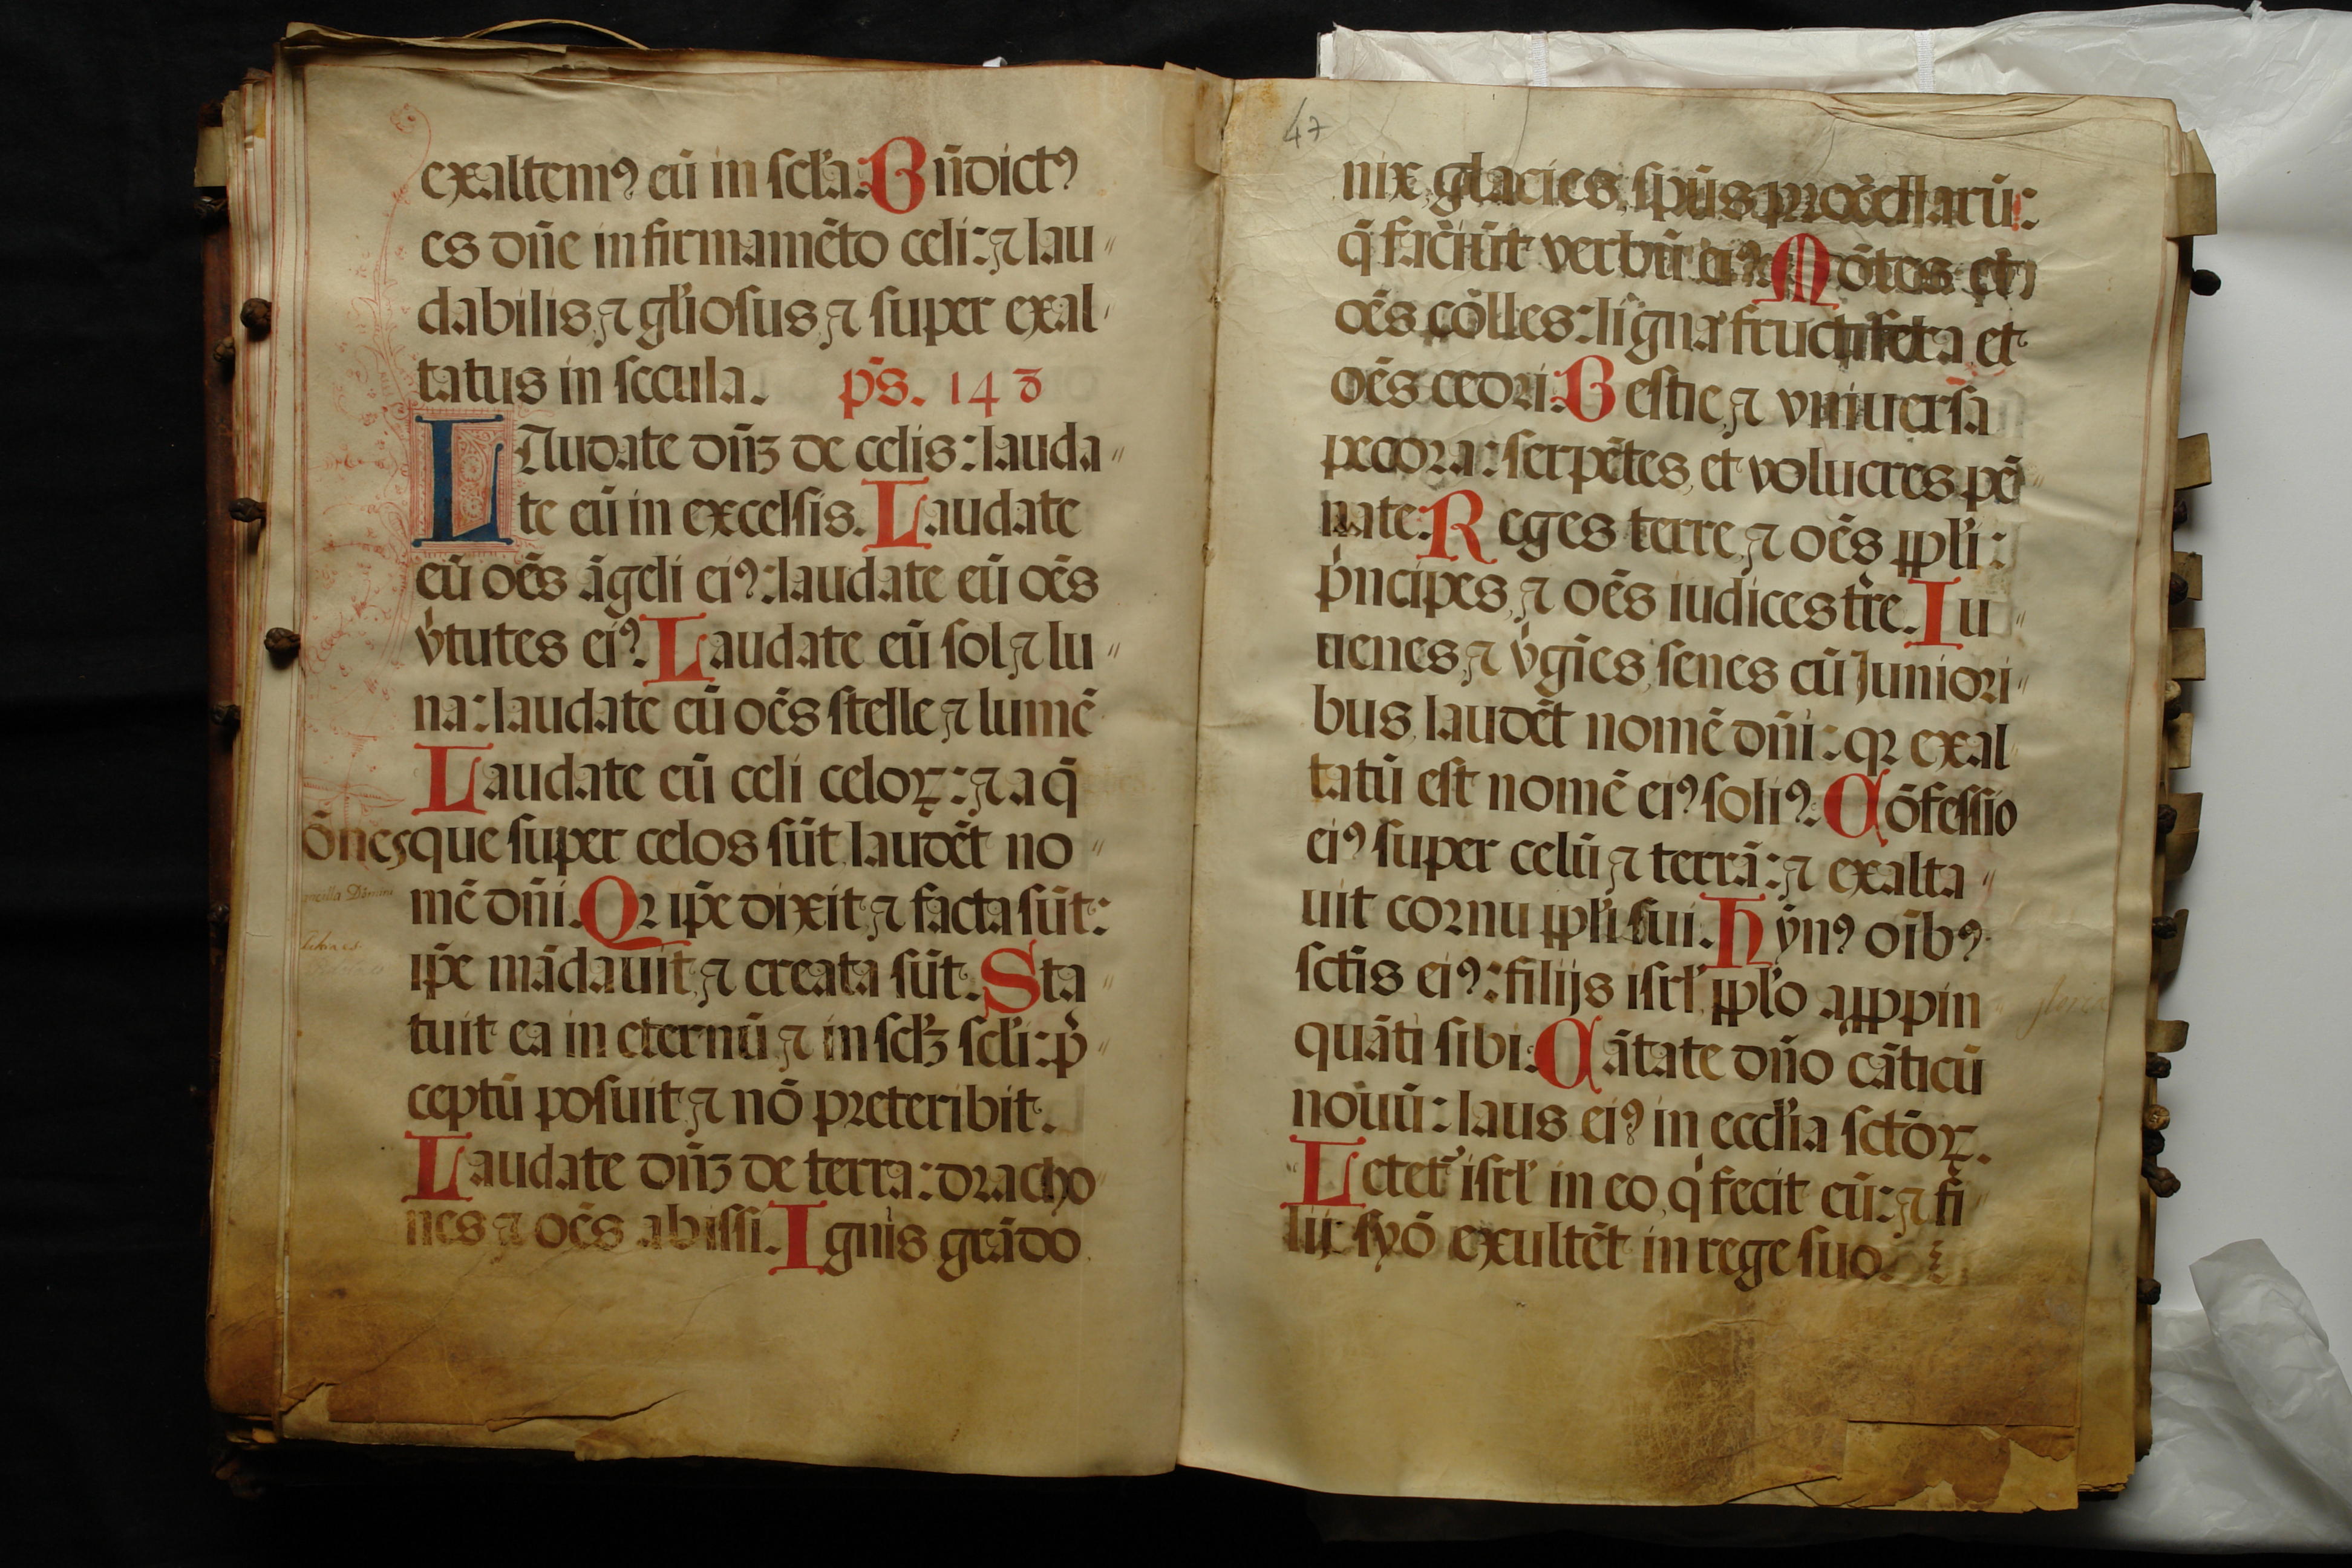 exaltemꝰ eū in scl̄a. Bn̄dictꝰ
es dn̄e in firmamēto celi: ⁊ lau〃
dabilis, ⁊ gl̄iosus, ⁊ super exal〃
tatus in secula. ps̄. 148
LAudate dn̄ʒ de celis: lauda〃
te eū in excelsis. Laudate
eū oēs āgeli eiꝰ: laudate eū oēs
v̓tutes eiꝰ. Laudate eū sol ⁊ lu〃
na: laudate eū oēs stelle ⁊ lumē
Laudate eū celi celoꝝ: ⁊ aq̄
ōnes que super celos sūt, laudēt no〃
mē dn̄i. Qꝛ ip̄e dixit, ⁊ facta sūt:
ip̄e mādauit, ⁊ creata sūt. Sta〃
tuit ea in eternū, ⁊ in scl̄ʒ scl̄i: p̄〃
ceptū posuit, ⁊ nō preteribit.
Laudate dn̄ʒ de terra: dracho〃
nes ⁊ oēs abissi. Ignis grādo
47
nix, glacies, sp̄us procellarū:
q̄ faciūt verbū eiꝰ. Mōtes et
oēs colles: ligna fructifera et
oēs cedri. Bestie, ⁊ vniuersa
pecora: serpētes, et volucres pē〃
nate. Reges terre, ⁊ oēs ppl̄i:
p̓ncipes, ⁊ oēs iudices tr̄e. Iu〃
uenes, ⁊ v̓gīes, senes cū Juniori〃
bus, laudēt nomē dn̄i: qꝛ exal〃
tatū est nomē eiꝰ soliꝰ. Cōfessio
eiꝰ super celū ⁊ terrā: ⁊ exalta〃
uit cornu ppl̄i sui. Hẏnꝰ oībꝰ
sctīs eiꝰ: filijs isrl̄, ppl̄o apppin〃
quāti sibi. Cātate dn̄o cāticū
nouū: laus eiꝰ in eccl̄ia sctōꝝ.
Letet᷑ isrl̄ in eo, q̓ fecit eū: ⁊ fi〃
lij syō exultēt in rege suo.